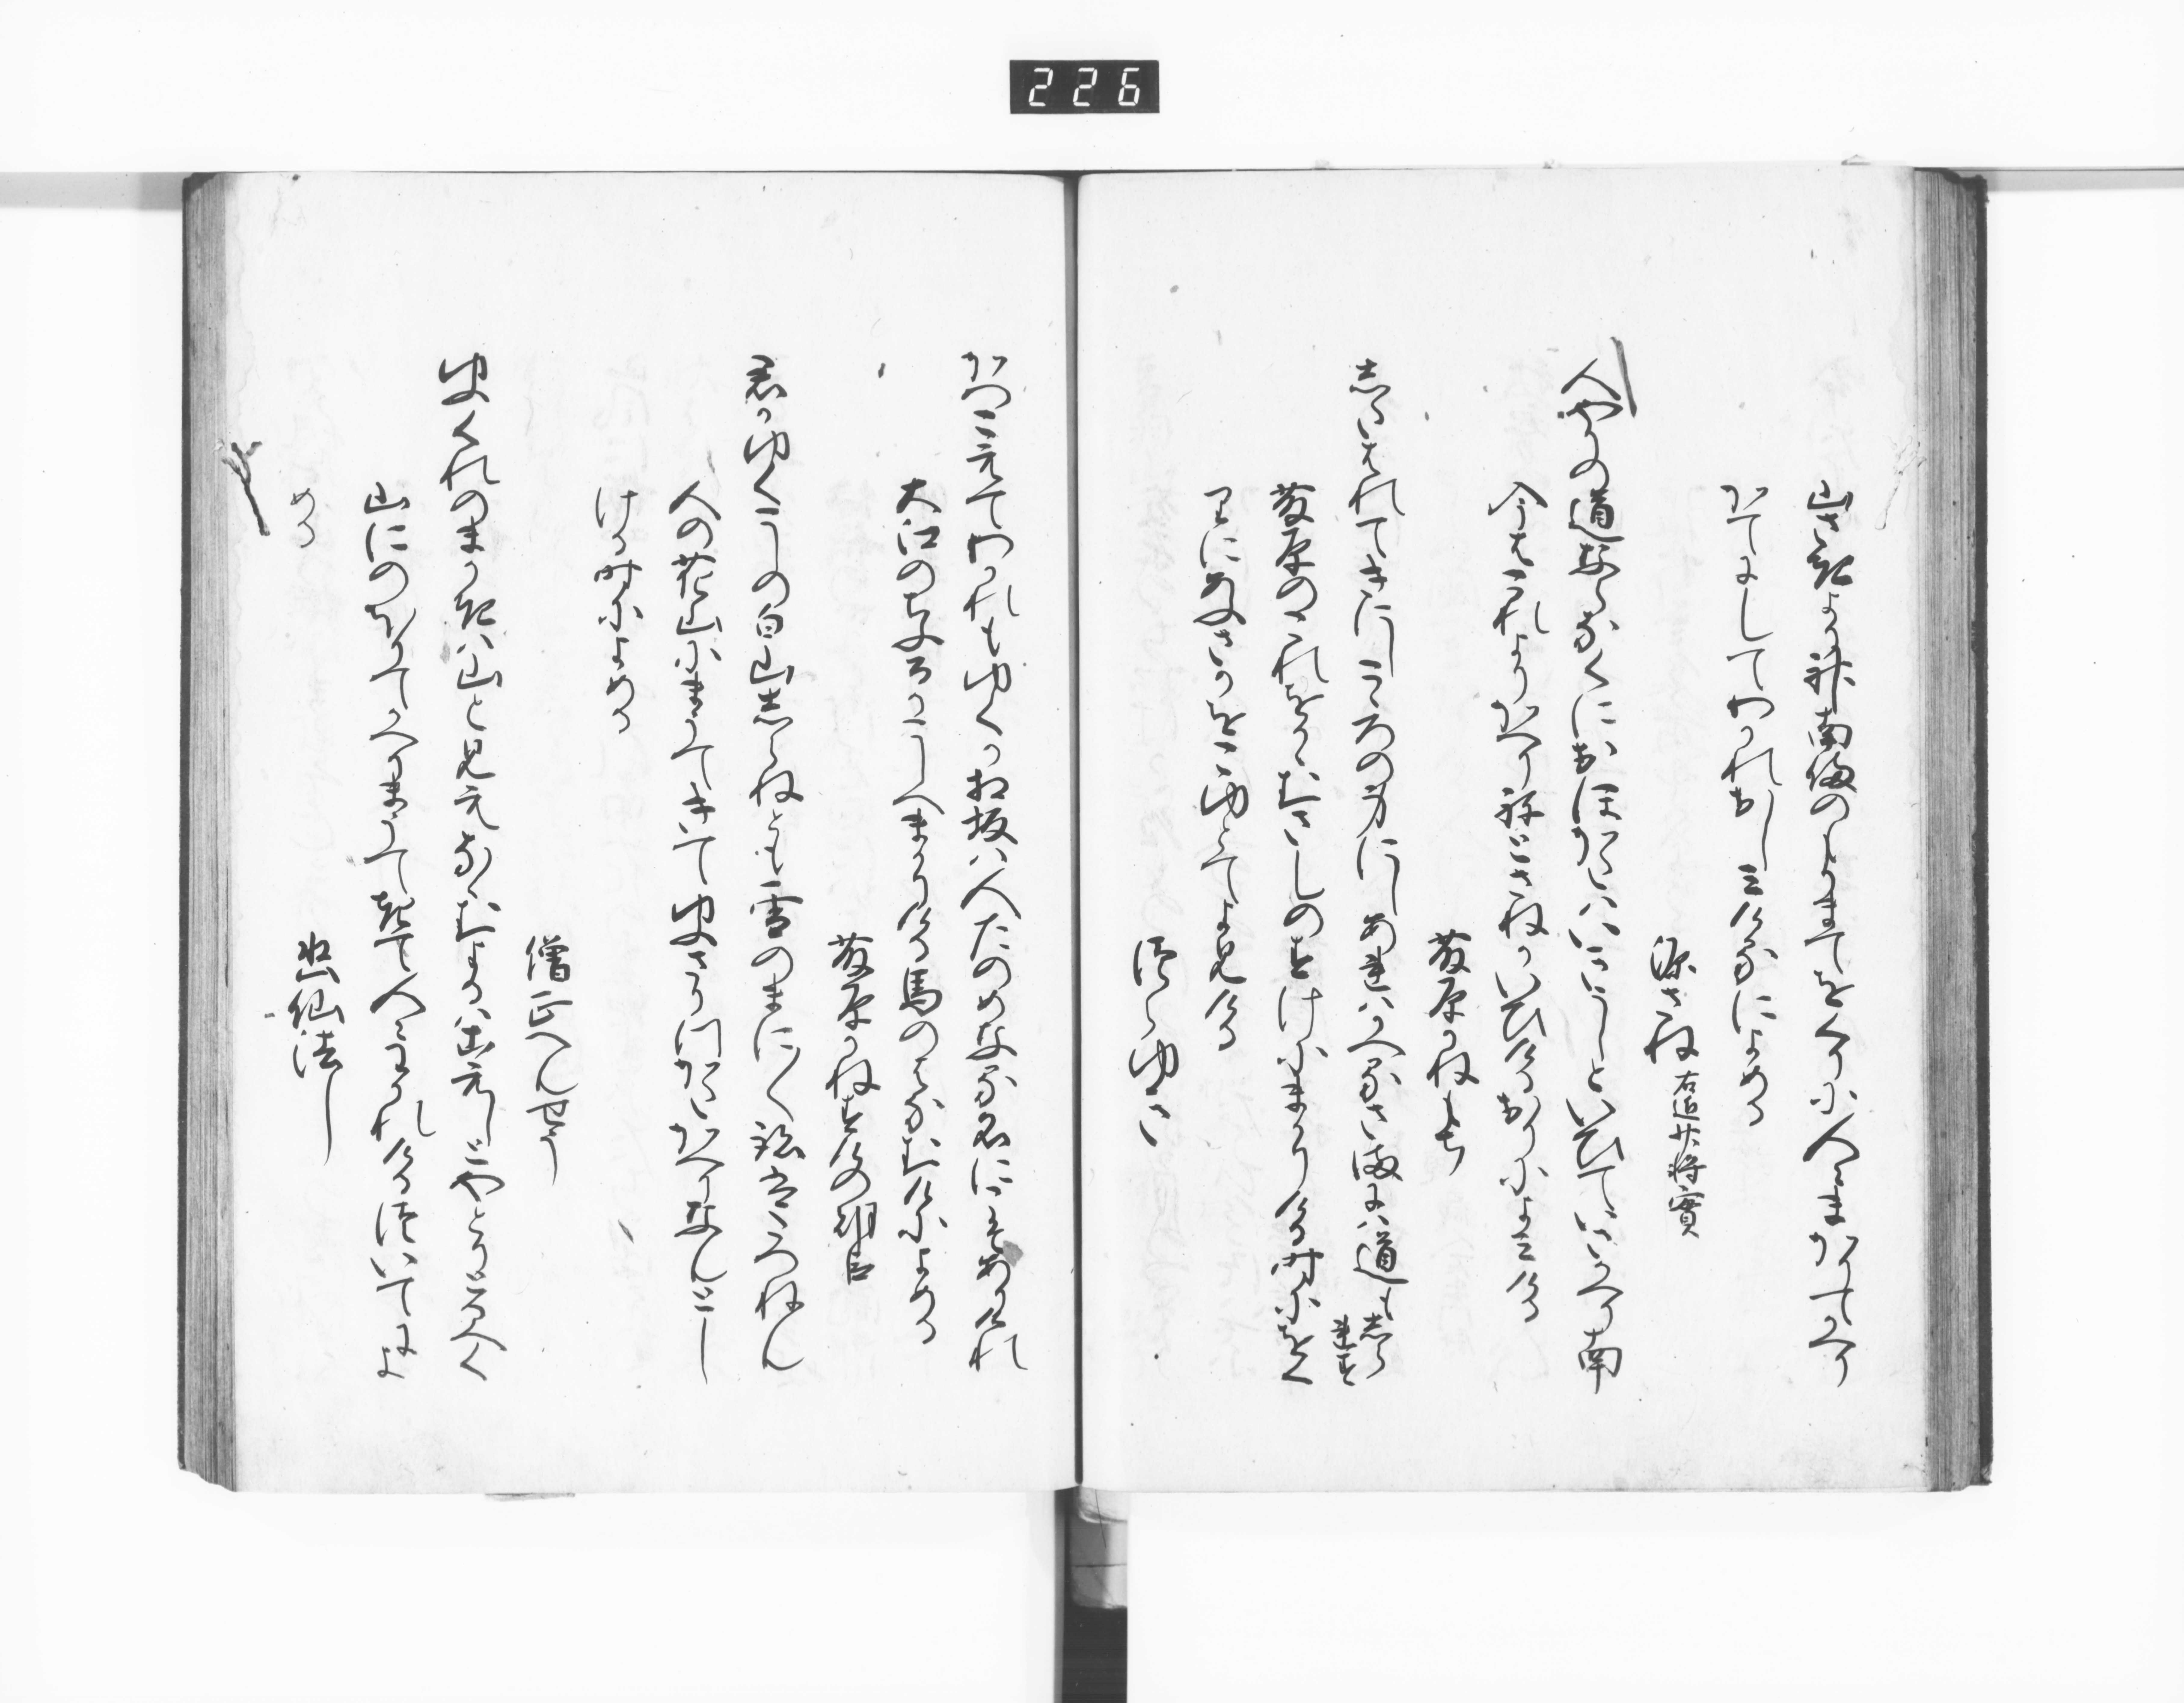 226
山さきより神南備のもりまてをくりに人々まかりてかへり
かてにしてわかれおしみけるによめる
源さね 右近少将實
人やりの道ならなくにおほかたはいきうしといひていさかへり南
今はこれよりかへりねとさねかいひけるおりによみける
藤原かねもち
したはれてきにし心の身にしあれはかへるさまには道もしら
れす
藤原のこれをかかむさしのすけにまかりける時にをく
りにあふさかをこゆとてよみける
つらゆき
かつこえてわかれもゆくか相坂は人たのめなる名にこそありけれ
大江のちふるかこしへまかりける馬のはなむけによめる
藤原かねすけの朝臣
君かゆくこしの白山しらねとも雪のまに〱跡はたつねん
人の花山にまうてきて夕さりつかたかへりなんとし
ける時によめる
僧正へんせう
夕くれのまかきは山と見えななむよるはこえしとやとりとるへく
山にのほりてかへりまうて来て人々わかれけるついてによ
める
幽仙法し